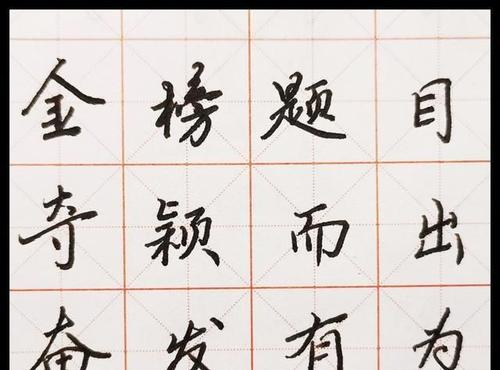 金榜题目
夺颖而出
奋发有为